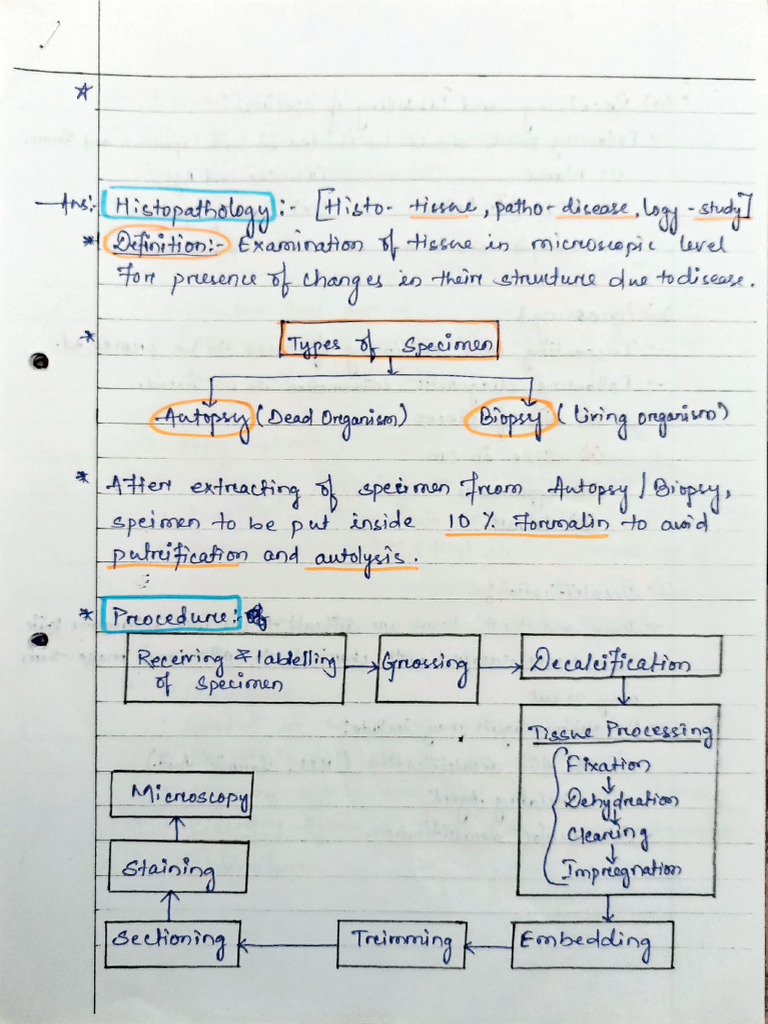 Ans:- Histopathology:- [Histo- tissue, patho-disease, logy-study]
* Definition:- Examination of tissue in microscopic level
For presence of changes in their structure due to disease.
* Types of Specimen
Autopsy (Dead Organism) Biopsy (Living organism)
* After extracting of specimen from Autopsy/Biopsy,
specimen to be put inside 10% Formalin to avoid
putreification and autolysis.
* Procedure:-
Receiving & labelling
of specimen
Grossing
Decalcification
Tissue Processing
Fixation
Dehydration
Clearing
Impregnation
Embedding
Trimming
Sectioning
Staining
Microscopy